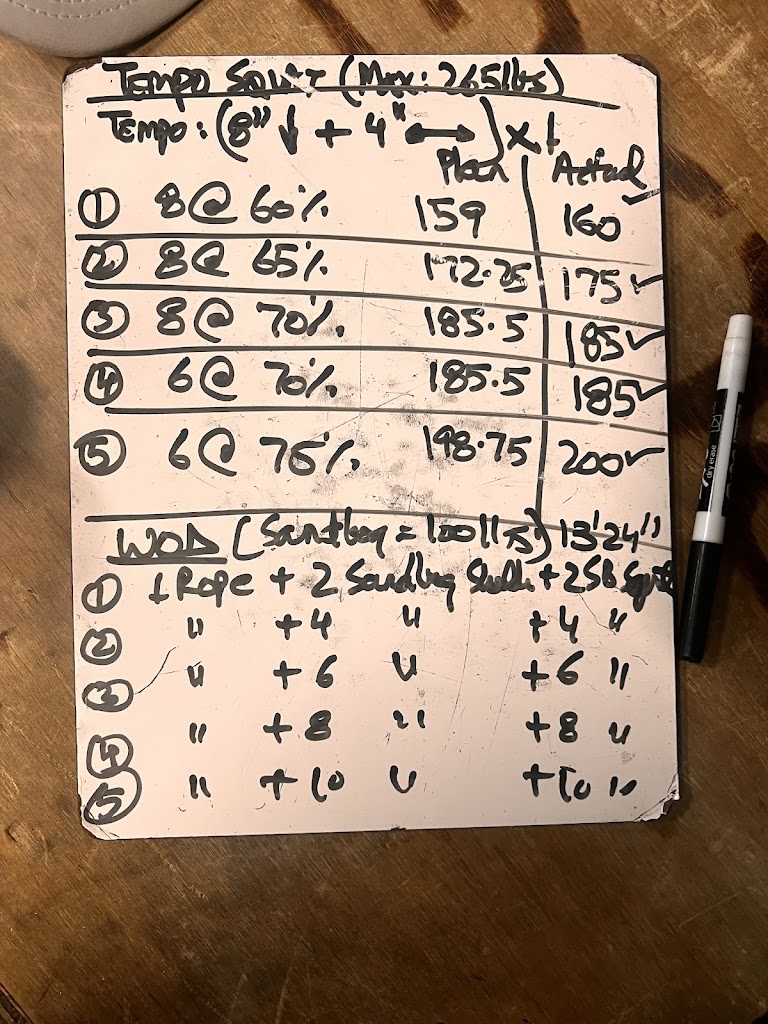 Tempo Squat (Max: 265lbs)
Tempo: (8" ↓ + 4" ↔) x 1
Plan Actual
① 8 @ 60% 159 160 ✓
② 8 @ 65% 172.25 175 ✓
③ 8 @ 70% 185.5 185 ✓
④ 6 @ 70% 185.5 185 ✓
⑤ 6 @ 75% 198.75 200 ✓
WOD (Sandbag = 100lbs) 13'24"
① 1 Rope + 2 Sandbag + 2 SB Squats
② " + 4 " + 4 "
③ " + 6 " + 6 "
④ " + 8 " + 8 "
⑤ " + 10 " + 10 "
dry erase